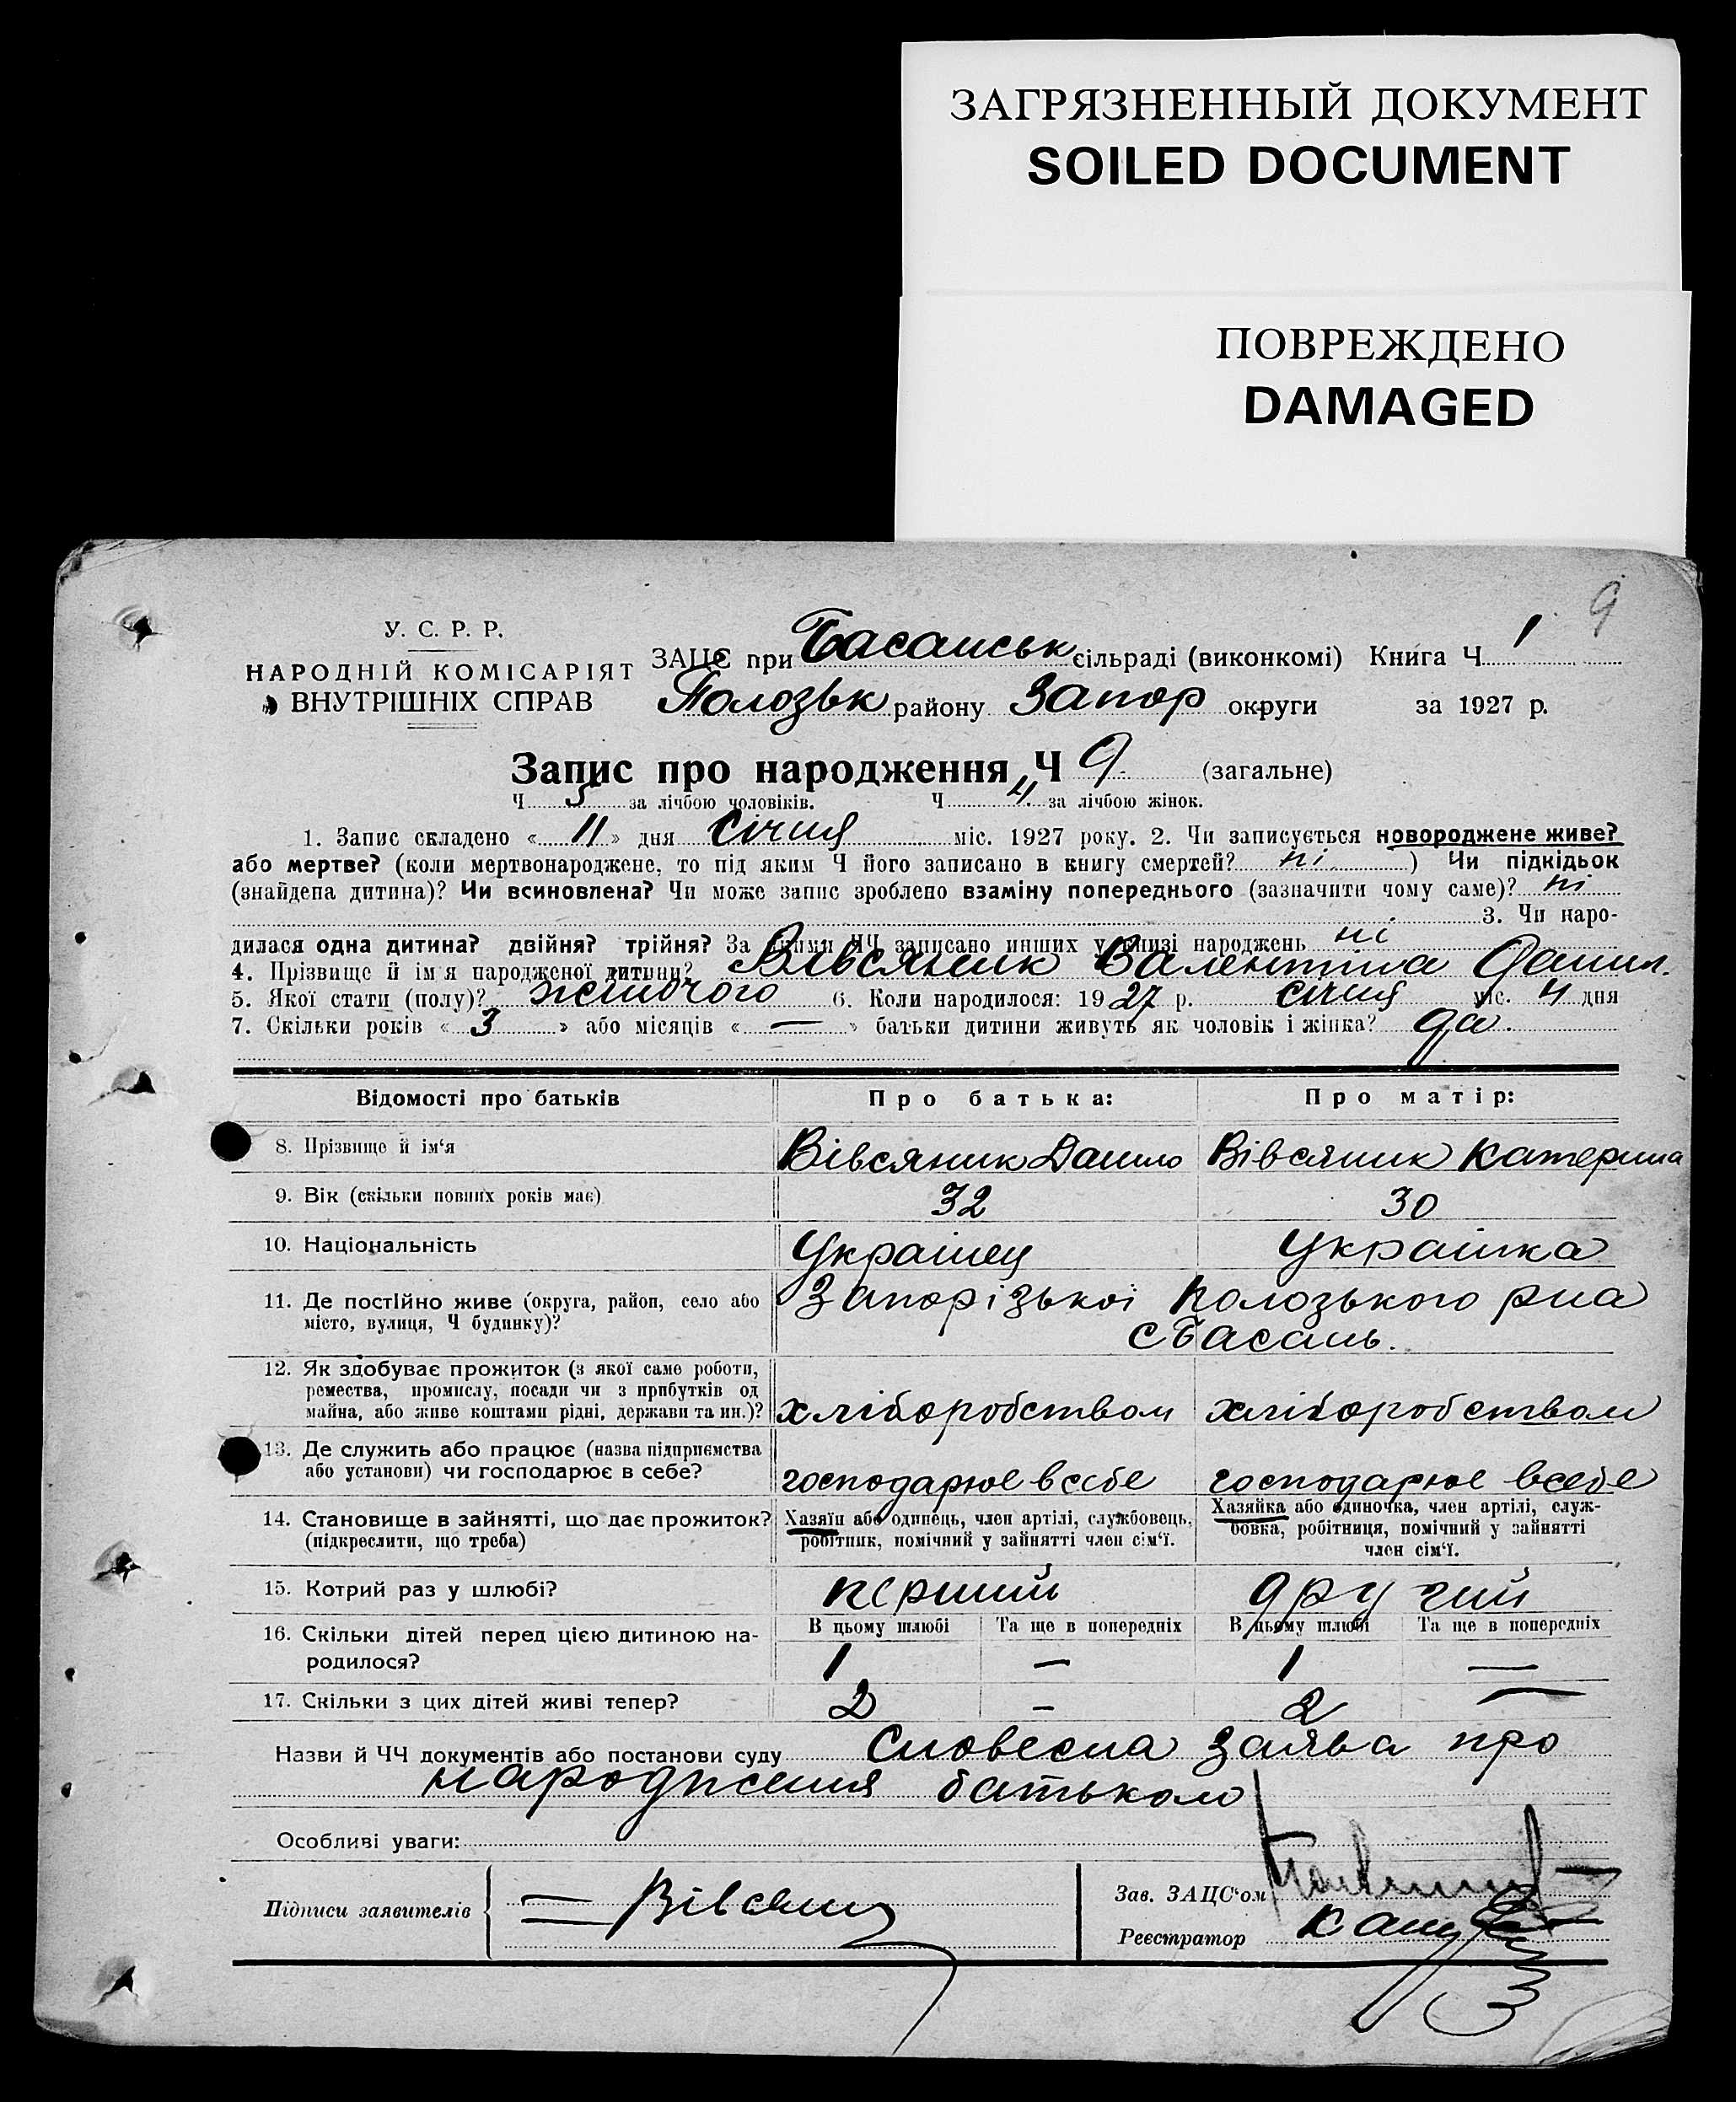 ЗАГРЯЗНЕННЫЙ ДОКУМЕНТ
SOILED DOCUMENT
ПОВРЕЖДЕНО
DAMAGED
9
У. С. Р. Р.
НАРОДНІЙ КОМІСАРІЯТ
ВНУТРІШНІХ СПРАВ
ЗАЦС при Басанськ сільраді (виконкомі) Книга Ч 1
Полозьк району Запор округи за 1927 р.
Запис про народження Ч 9 (загальне)
Ч 5 за лічбою чоловіків. Ч 4 за лічбою жінок.
1. Запис складено « 11 » дня Січня міс. 1927 року. 2. Чи записується новороджене живе?
або мертве? (коли мертвонароджене, то під яким Ч його записано в книгу смертей? ні ) Чи підкідьок
(знайдена дитина)? Чи всиновлена? Чи може запис зроблено взаміну попереднього (зазначити чому саме)? ні
3. Чи наро-
дилася одна дитина? двійня? трійня? За якими ЧЧ записано инших у книзі народжень ні
4. Прізвище й ім'я народженої дитини? Вівсяник Валентина Данил.
5. Якої стати (полу)? жіночого 6. Коли народилося: 1927 р. січня міс. 4 дня
7. Скільки років « 3 » або місяців « — » батьки дитини живуть як чоловік і жінка? да.
Відомості про батьків Про батька: Про матір:
8. Прізвище й ім‘я Вівсяник Данило Вівсяник Катерина
9. Вік (скільки повних років має) 32 30
10. Національність Українец Українка
11. Де постійно живе (округа, район, село або Запорізької Полозького рна
місто, вулиця, Ч будинку)? с Басань.
12. Як здобуває прожиток (з якої саме роботи,
ремества, промислу, посади чи з прибутків од
майна, або живе коштами рідні, держави та ин.)? хліборобством хліборобством
13. Де служить або працює (назва підприємства
або установи) чи господарює в себе? господарює в себе господарює в себе
14. Становище в зайнятті, що дає прожиток? Хазяїн або одинець, член артілі, службовець, Хазяйка або одиночка, член артілі, служ-
(підкреслити, що треба) робітник, помічний у зайнятті член сім‘ї. бовка, робітниця, помічний у зайнятті
член сім‘ї.
15. Котрий раз у шлюбі? перший другий
16. Скільки дітей перед цією дитиною на- В цьому шлюбі Та ще в попередніх В цьому шлюбі Та ще в попередніх
родилося? 1 — 1 —
17. Скільки з цих дітей живі тепер? 2 – 2 —
Назви й ЧЧ документів або постанови суду Словесна заява про
народження батьком
Особливі уваги:
Підписи заявителів — Вівсяник
Зав. ЗАЦС‘ом
Реєстратор